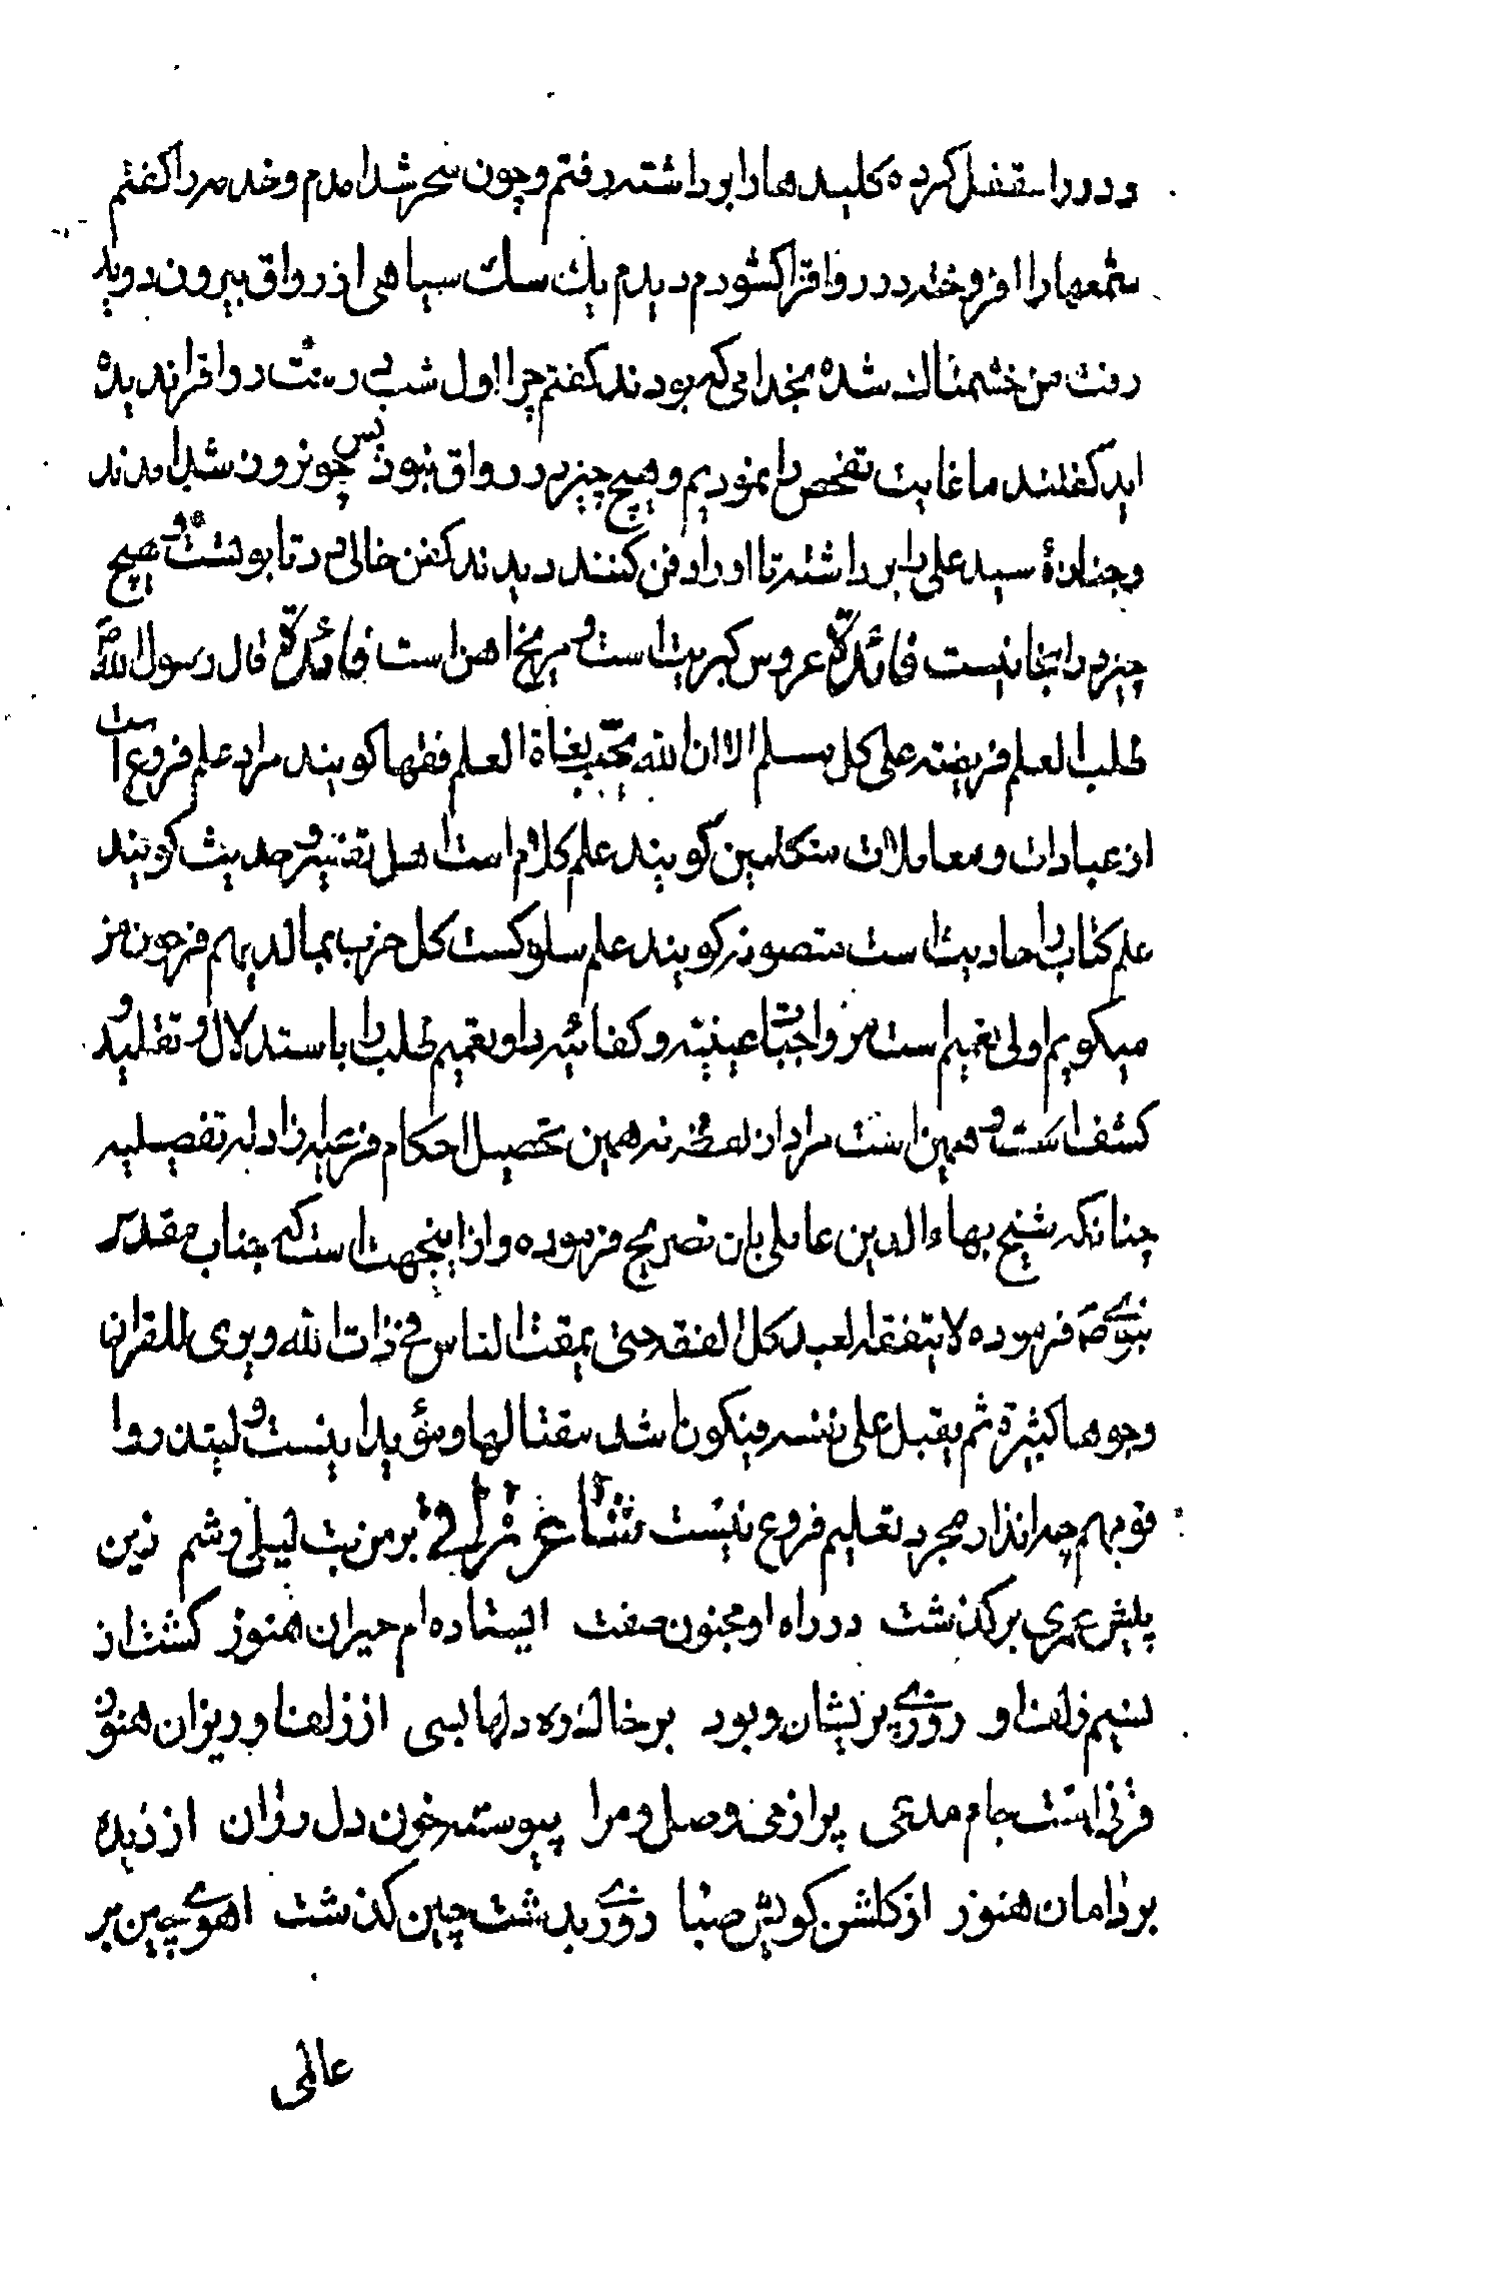 و در را مقفل کرده کلیدها را برداشته رفتم و چون سحر شد امدم و خدمه را کفتم
شمعها را افروخته در رواقرا کشودم دیدم یك سك سیاهی از رواق بیرون دوید
رفت من خشمناك شده بخدامی که بودند کفتم چرا اول شب درست رواقرا ندیده
اید کفتند ما غایت تفحص را نمودیم و هیچ چیز در رواق نبود پس چون روز شد امدند
و جنازهٔ سید علی را برداشته تا او را دفن کنند دیدند کفن خالی در تابوتست و هیچ
چیز در انجا نیست فائدة عروس کبریت است و مریخ اهن است فائدة قال رسول الله ص
طلب العلم فریضة علی کل مسلم الا ان الله یحب بغاة العلم فقها کویند مراد علم فروع است
از عبادات و معاملات متکلمین کویند علم کلام است اهل تفسیر و حدیث کویند
علم کتاب را حادیث است متصوفه کویند علم سلوکست کل حزب بما لدیهم فرحون من
میکویم اولی تعمیم است من واجبات عینیه و کفائیه را و تعمیم طلب را باستدلال و تقلید و
کشف است و همین است مراد از تفقه نه همین تحصیل احکام فرعیه از ادله تفصیلیه
چنانکه شیخ بهاء الدین عاملی بان تصریح فرموده و از اینجهت است که جناب مقدس
نبوے ص فرموده لا یتفقه العبد کل الفقه حتی یمقت الناس فی ذات الله و یری للقران
وجوها کثیرة ثم یقبل علی نفسه فیکون اشد مقتا لها و مؤید اینست و لینذروا
قومهم چه انذار مجرد تعلیم فروع نیست شاعر عراقے بر من بت لیلی وشم زین
پیش عمری برکذشت در راه او مجنون صفت ایستاده ام حیران هنوز کشت از
نسیم زلف او روزے پریشان و بود بر خاك ره دلها بسی از زلف او ریزان هنوز
قرنی است جام مدعی پر از می وصل و مرا پیوسته خون دل روان از دیده
بر دامان هنوز از کلشن کویش صبا روزے بدشت چین کذشت اهوے چین بر
عالمی